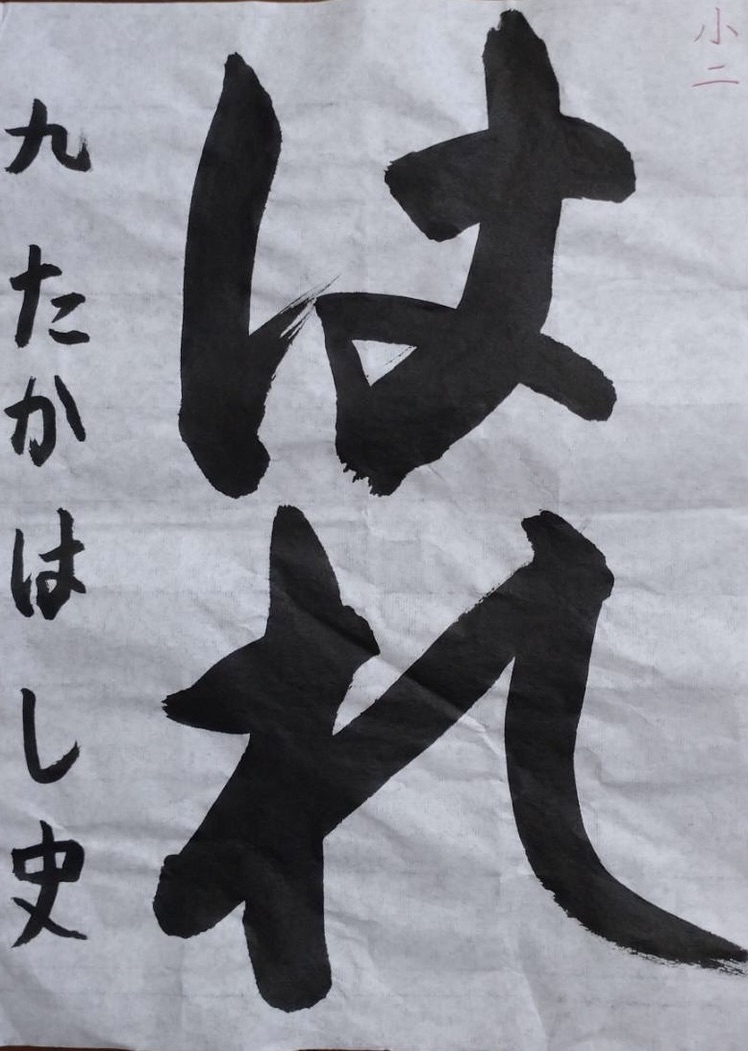 小二
はれ
九 たかはし 史